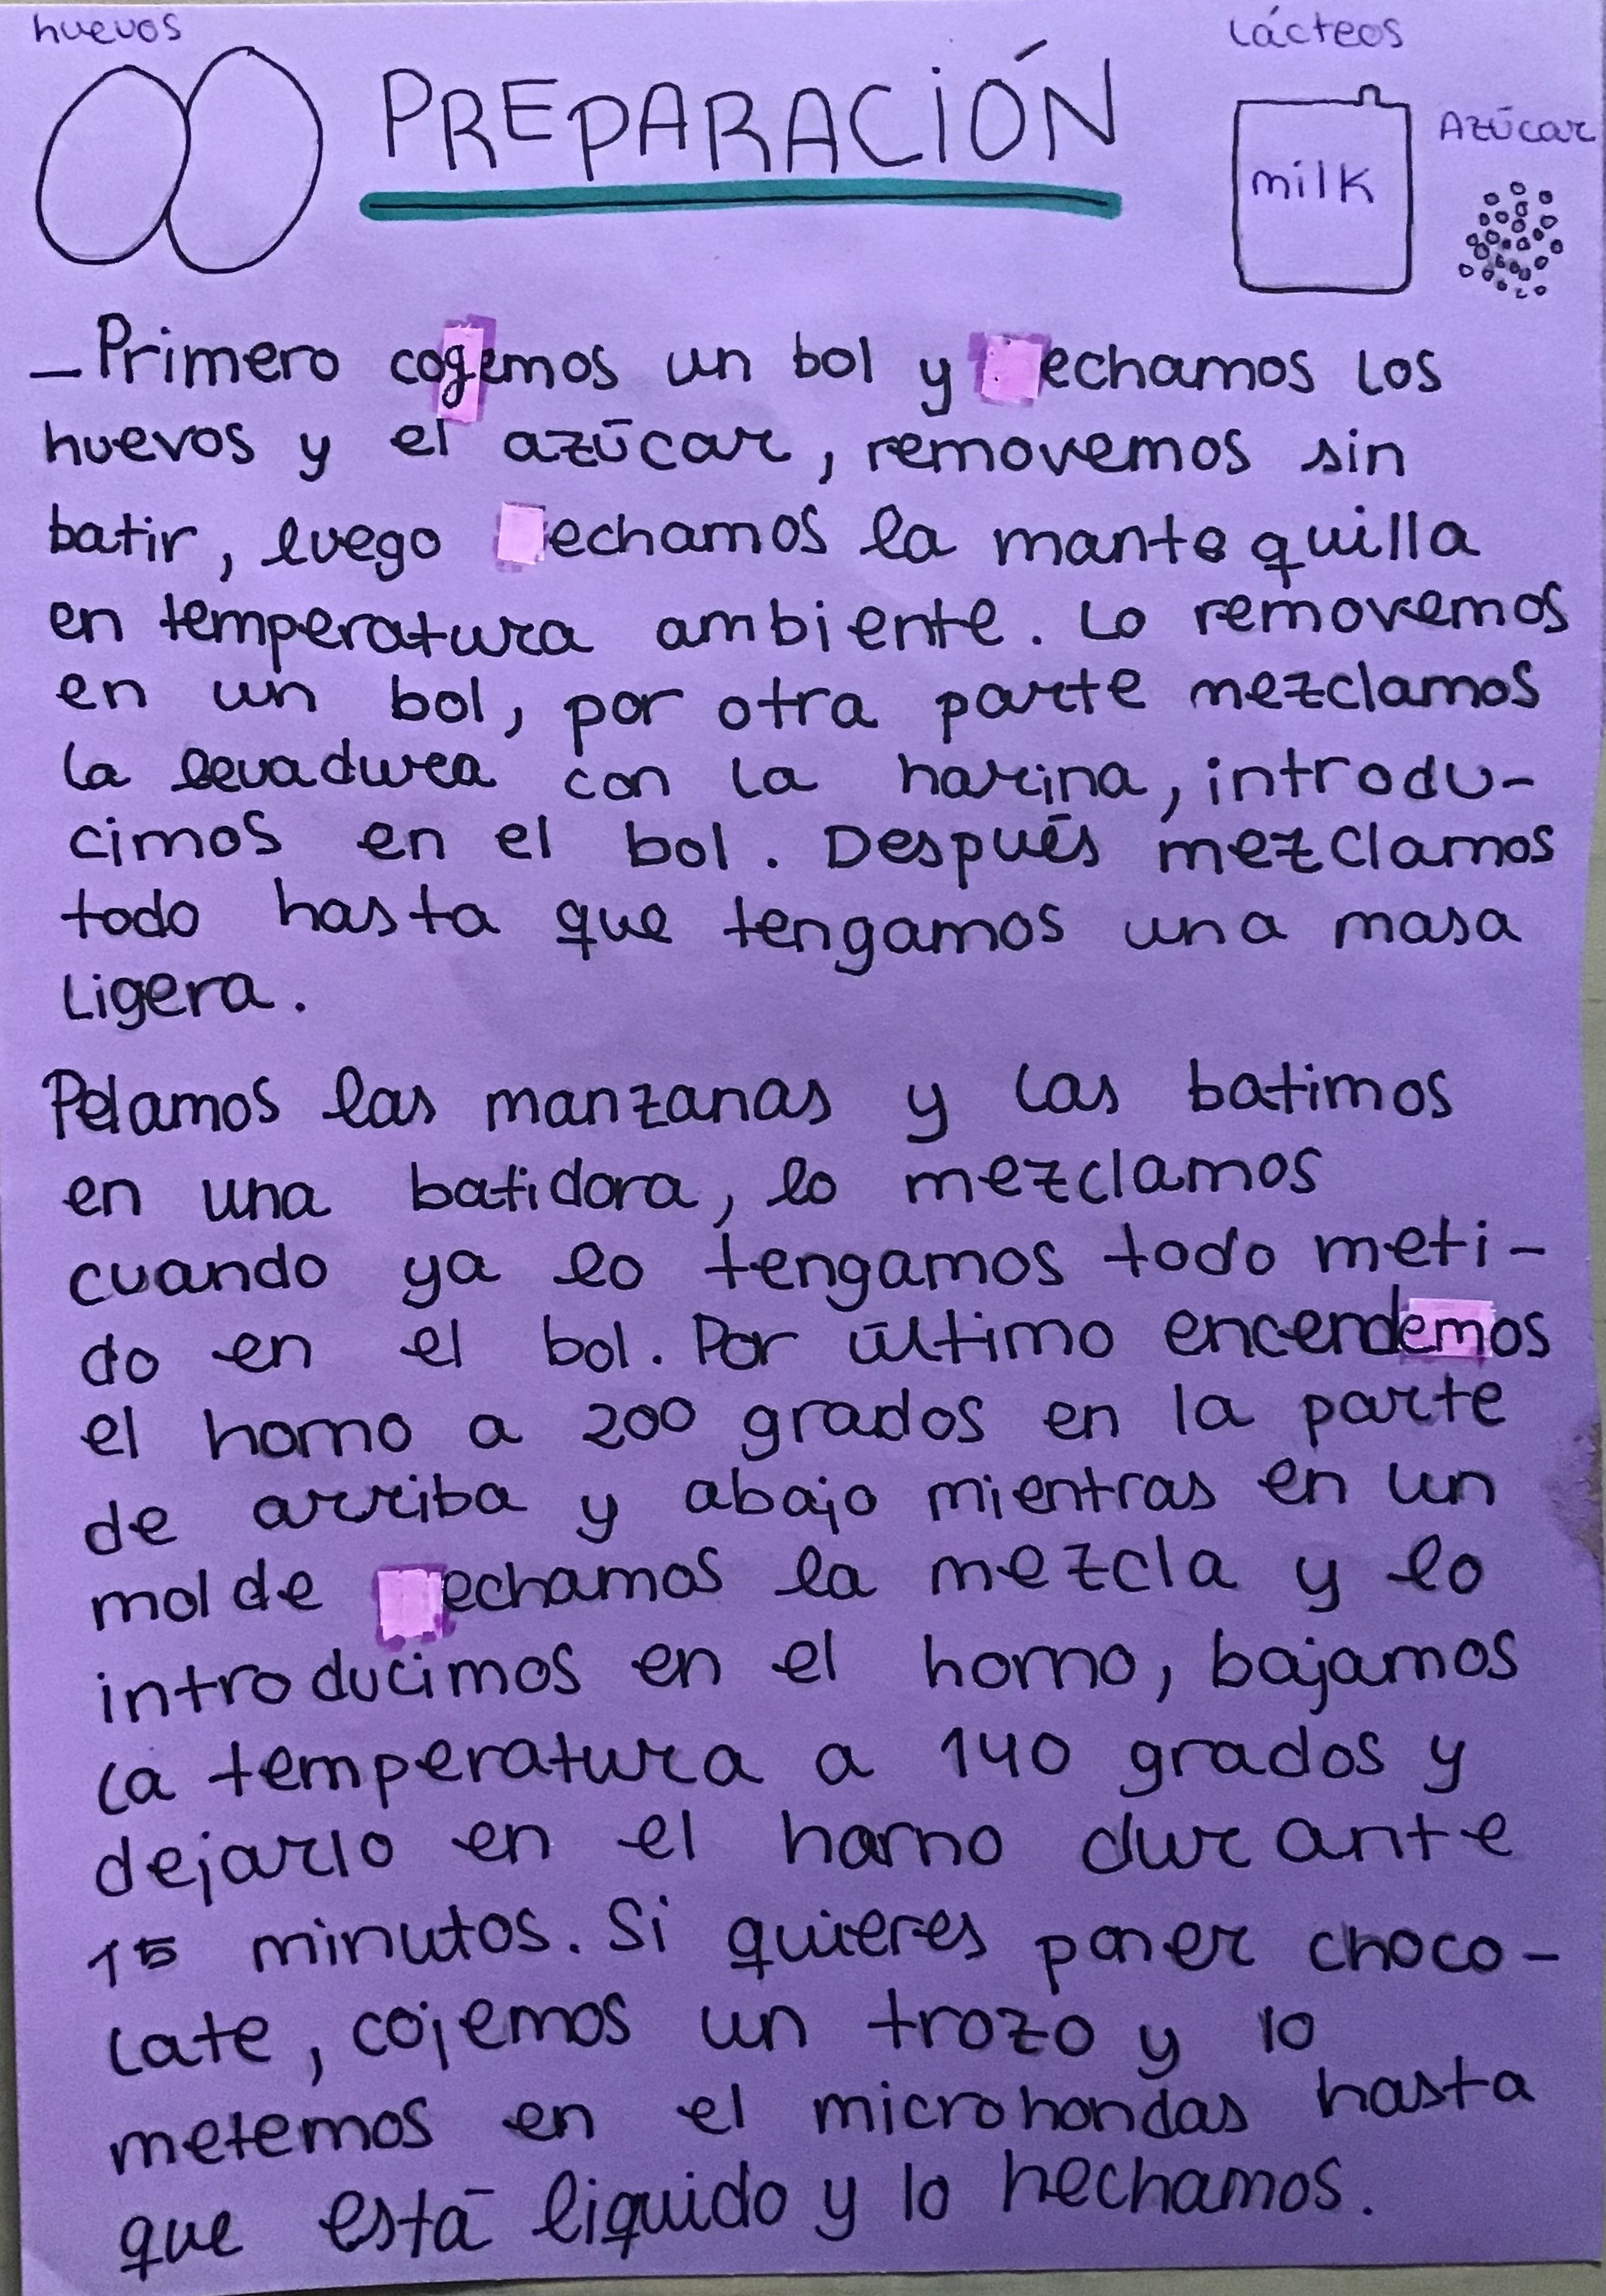 huevos
Lácteos
PREPARACIÓN
AZÚCAR
milk
_Primero cogemos un bol y echamos los
huevos y el azúcar, removemos sin
batir, luego echamos la mantequilla
en temperatura ambiente. Lo removemos
en un bol, por otra parte mezclamos
la levadura con la harina, introdu-
cimos en el bol. Después mezclamos
todo hasta que tengamos una masa
Ligera.
Pelamos las manzanas y las batimos
en una batidora, lo mezclamos
cuando ya lo tengamos todo meti-
do en el bol. Por último encendemos
el horno a 200 grados en la parte
de arriba y abajo mientras en un
molde echamos la mezcla y lo
introducimos en el horno, bajamos
la temperatura a 140 grados y
dejarlo en el horno durante
15 minutos. Si quieres poner choco-
late, cojemos un trozo y lo
metemos en el microhondas hasta
que está liquido y lo hechamos.